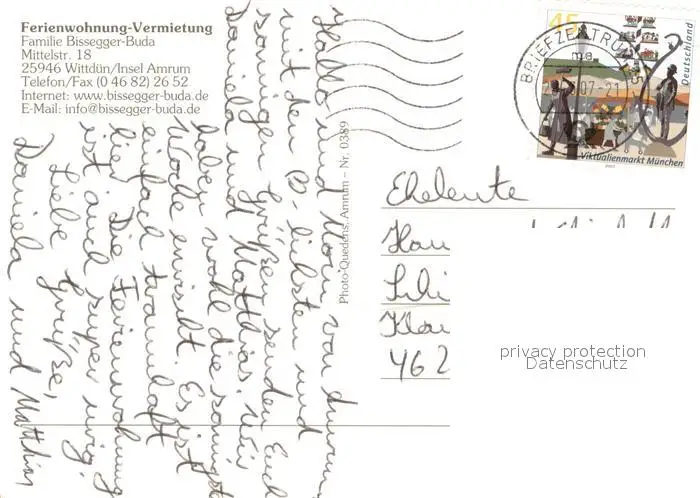 Ferienwohnung-Vermietung
Familie Bissegger-Buda
Mittelstr. 18
25946 Wittdün/Insel Amrum
Telefon/Fax (0 46 82) 26 52
Internet: www.bissegger-buda.de
E-Mail: info@bissegger-buda.de
Hallo und Moin von Amrum
mit den lieblichsten und
sonnigen Grüßen senden Euch
Daniela und Matthias. Wir
haben wohl die sonnigste
Woche erwischt. Es ist
einfach traumhaft
hier. Die Ferienwohnung
ist auch super urig.
Liebe Grüße,
Daniela und Matthias
Photo-Quedens, Amrum – Nr. 0389
45
Deutschland
Viktualienmarkt München
BRIEFZENTRUM
Eheleute
462
privacy protection
Datenschutz